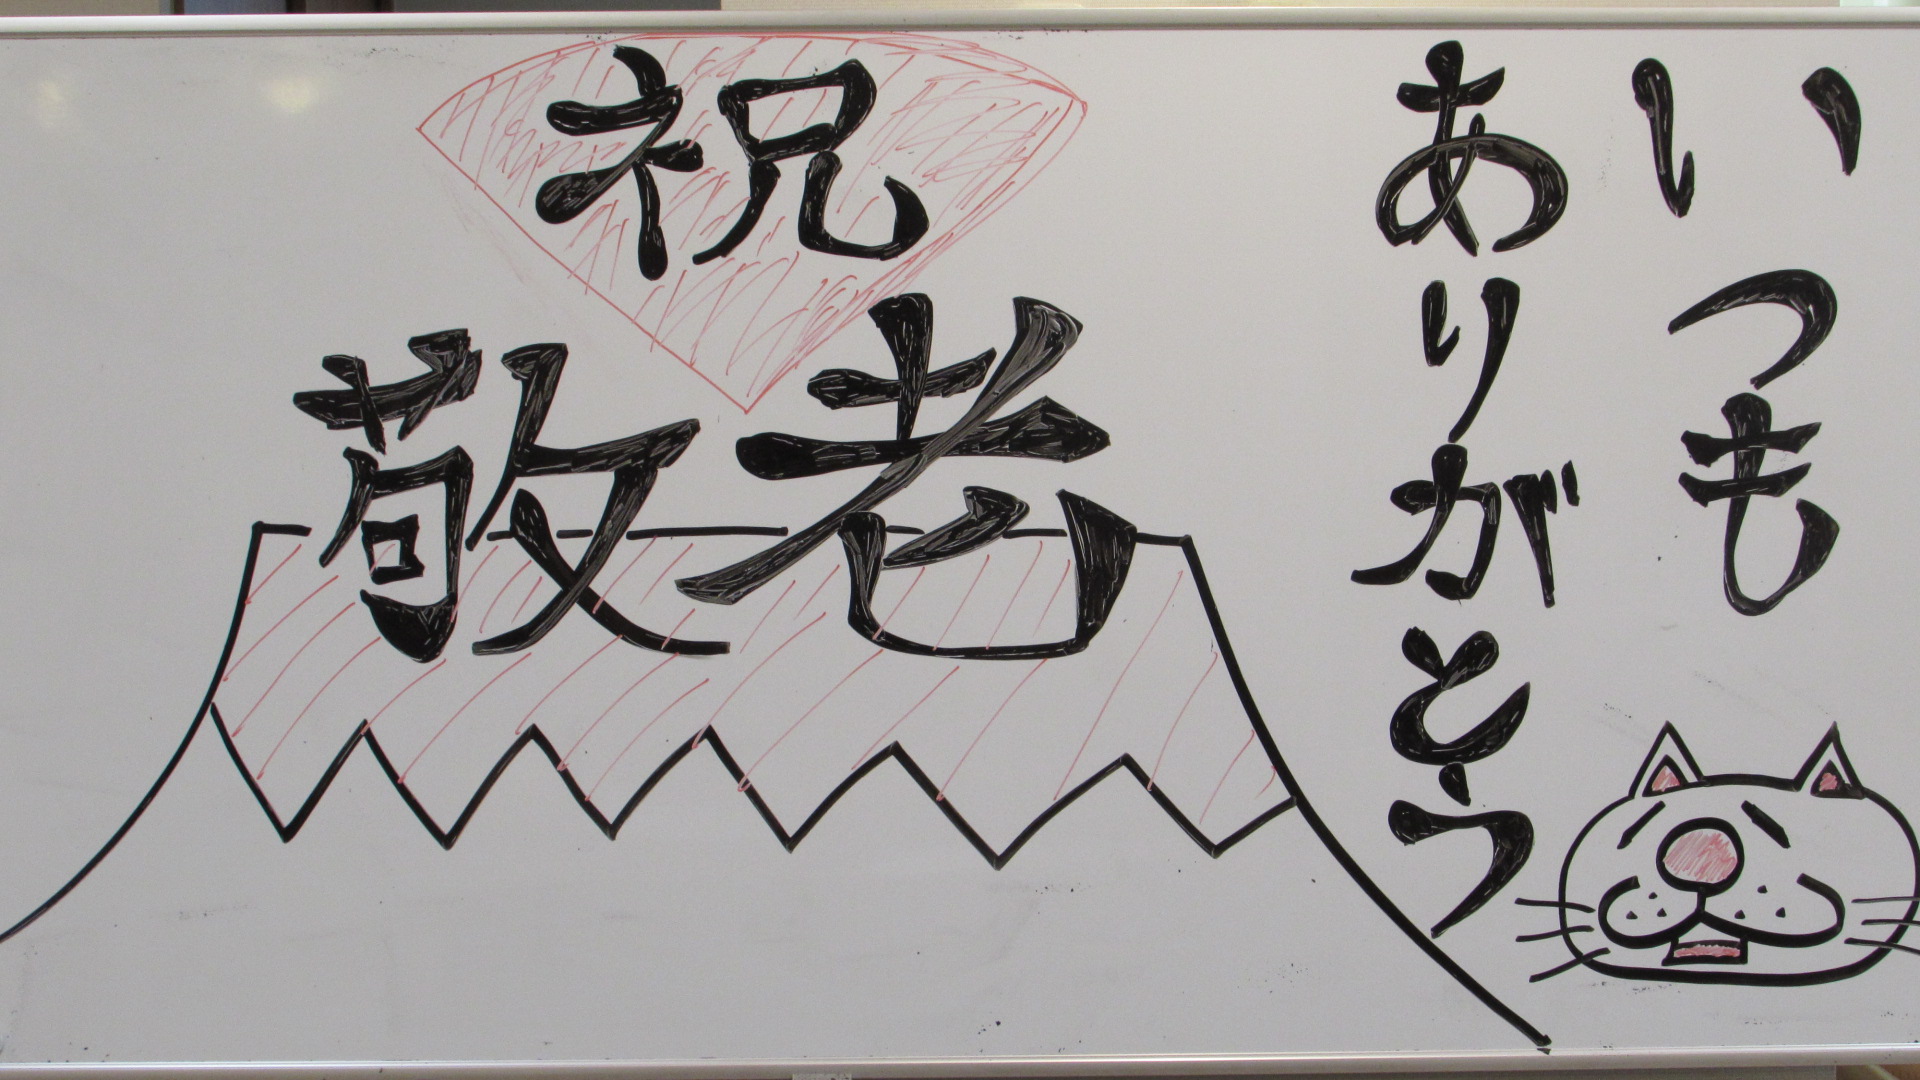 いつも
ありがとう
祝
敬老